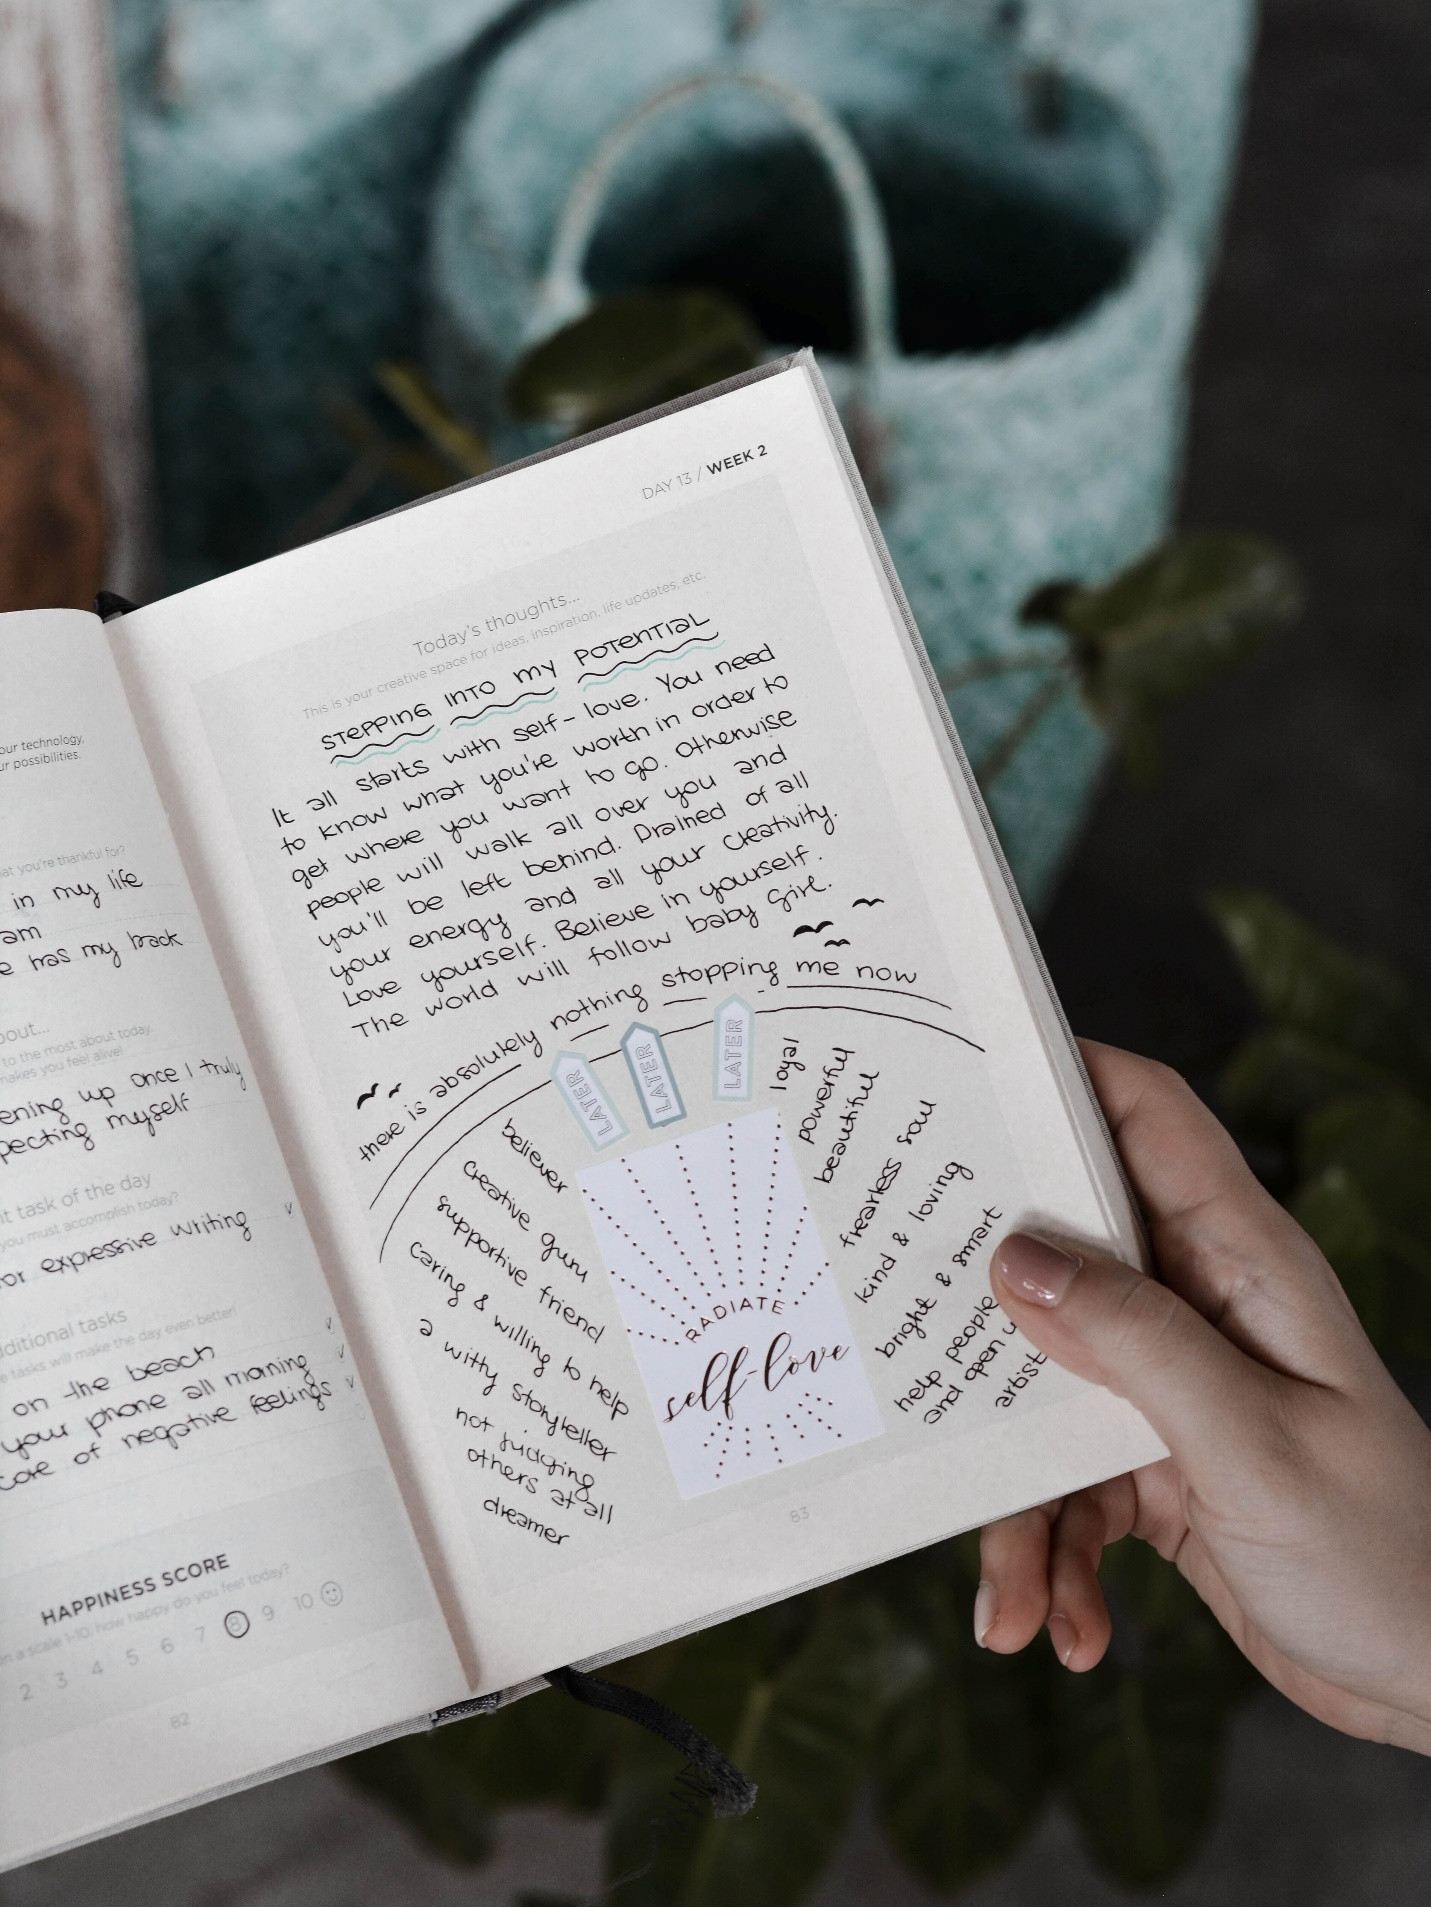 our technology,
ur possibilities.
hat you're thankful for?
in my life
am
e has my back
out...
to the most about today,
makes you feel alive!
ening up once I truly
pecting myself
it task of the day
you must accomplish today?
or expressive writing
dditional tasks
e tasks will make the day even better!
on the beach
your phone all morning
care of negative feelings
HAPPINESS SCORE
on a scale 1-10, how happy do you feel today?
2 3 4 5 6 7 8 9 10
82
DAY 13 / WEEK 2
Today's thoughts...
This is your creative space for ideas, inspiration, life updates, etc.
STEPPING INTO MY POTENTIAL
It all starts with self-love. You need
to know what you're worth in order to
get where you want to go. Otherwise
people will walk all over you and
you'll be left behind. Drained of all
your energy and all your creativity.
Love yourself. Believe in yourself.
The world will follow baby girl.
there is absolutely nothing stopping me now
LATER
LATER
LATER
believer
creative guru
supportive friend
caring & willing to help
a witty storyteller
not judging
others at all
dreamer
RADIATE
self-love
loyal
powerful
beautiful
fearless soul
kind & loving
bright & smart
help people
and open u
artist
83